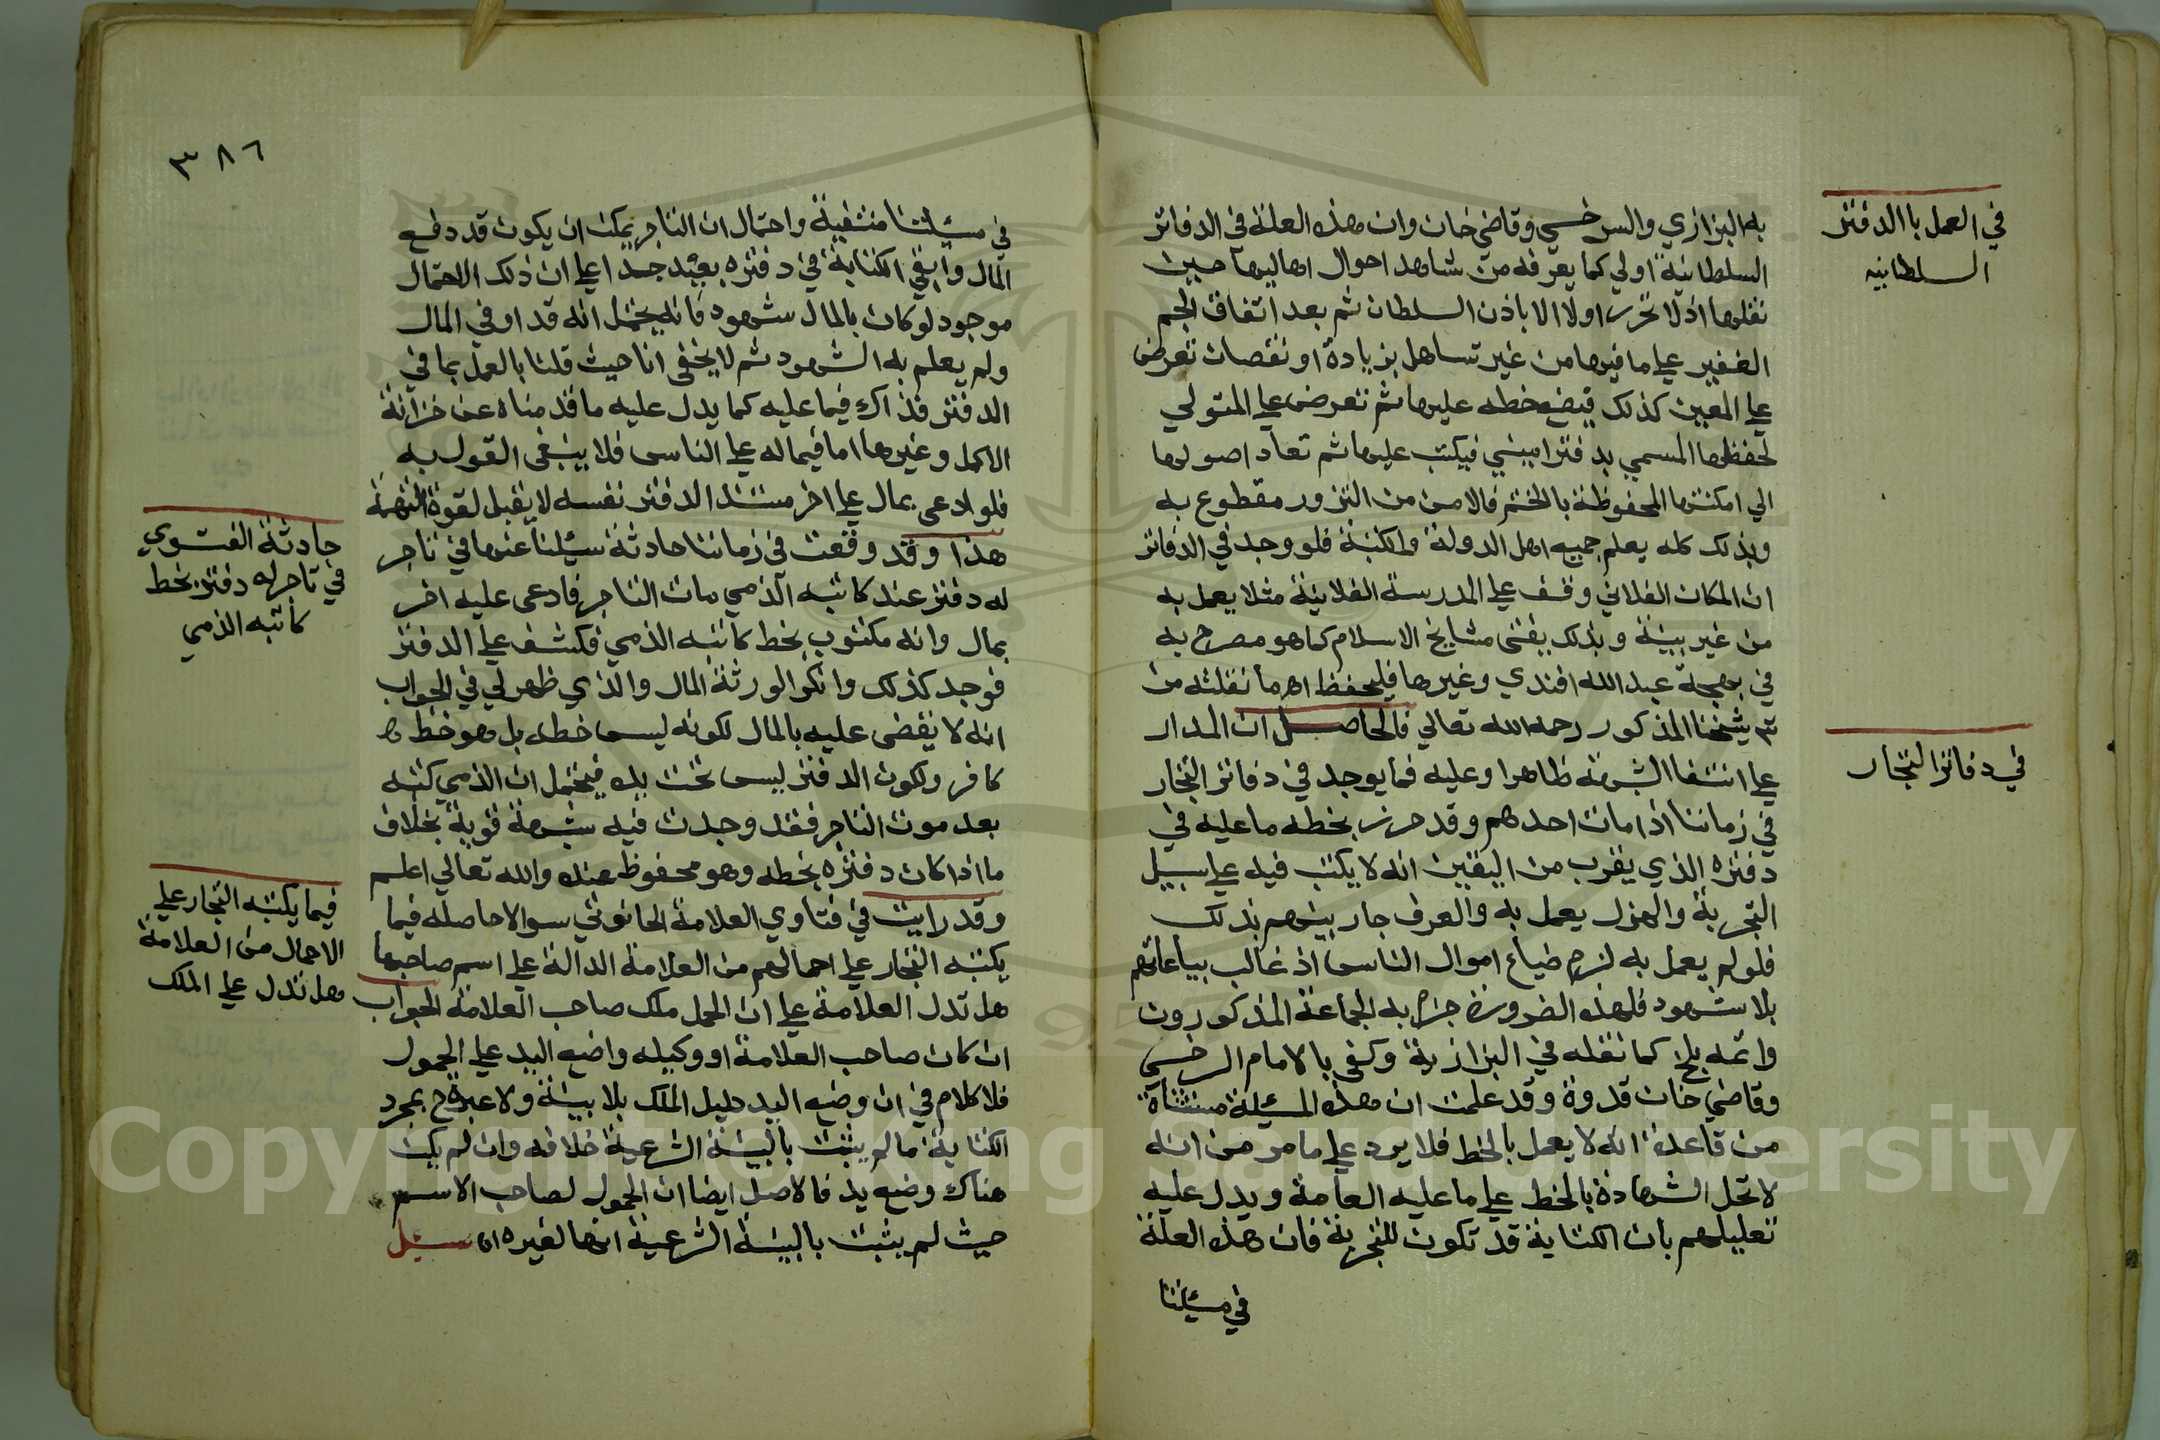 في العمل باالدفتر
السلطانيه
به البزازي والسرخسي وقاضي خان وان هذه العلة في الدفاتر
السلطانية اولي كما يعرفه من شاهد احوال اهاليها حين
نقلها اذ لا تحرر اولا الا باذن السلطان ثم بعد اتفاق الجم
الغفير علي ما فيها من غير تساهل بزيادة او نقصان تعرض
علي المعين كذلك فيضع خطه عليها ثم تعرض علي المتولي
لحفظها المسمي بدفتر اميني فيكتب عليها ثم تعاد اصولها
الي امكنتها المحفوظة بالختم فالامن من التزور مقطوع به
وبذلك كله يعلم جميع اهل الدولة والكتبة فلو وجد في الدفاتر
ان المكان الفلاني وقف علي المدرسة الفلانية مثلا يعمل به
من غير بينة وبذلك يفتي مشايخ الاسلام كما هو مصرح به
في بهجة عبد الله افندي وغيرها فليحفظ اه ما نقلته من
شيخنا المذكور رحمه الله تعالي فالحاصل ان المدار
في دفاتر التجار
علي انتفا الشبهة ظاهرا وعليه فما يوجد في دفاتر التجار
في زماننا اذا مات احدهم وقد حرر بخطه ما عليه في
دفتره الذي يقرب من اليقين انه لا يكتب فيه علي سبيل
التجربة والهزل يعمل به والعرف جار بينهم بذلك
فلو لم يعمل به لزم ضياع اموال الناس اذ غالب بياعاتهم
بلا شهود فلهذه الضرورة جزم به الجماعة المذكورون
وائمة بلخ كما نقله في البزازية وكفي بالامام السرخسي
وقاضي خان قدوة وقد علمت ان هذه المسئلة مستثناة
من قاعدة انه لا يعمل بالخط فلا يرد علي ما مر من انه
لا تحل الشهادة بالخط علي ما عليه العامة ويدل عليه
تعليلهم بان الكتابة قد تكون للتجربة فان هذه العلة
في مسئلتنا
٣٨٦
في مسئلتنا منتفية واحتمال ان التاجر يمكن ان يكون قد دفع
المال وابقي الكتابة في دفتره بعيد جدا علي ان ذلك الاحتمال
موجود لو كان بالمال شهود فانه يحتمل انه قد اوفي المال
ولم يعلم به الشهود ثم لا يخفي انا حيث قلنا بالعمل بما في
الدفتر فذاك فيما عليه كما يدل عليه ما قدمناه عن خزانة
الاكمل وغيرها اما فيما له علي الناس فلا ينبغي القول به
فلو ادعي بمال علي اخر مستندا لدفتر نفسه لا يقبل لقوة التهمة
حادثة الفتوي
في تاجر له دفتر بخط
كاتبه الذمي
هذا وقد وقعت في زماننا حادثة سئلنا عنها في تاجر
له دفتر عند كاتبه الذمي مات التاجر فادعي عليه اخر
بمال وانه مكتوب بخط كاتبه الذمي فكشف علي الدفتر
فوجد كذلك وانكر الورثة المال والذي ظهر لي في الجواب
انه لا يقضي عليه بالمال لكونه ليس خطه بل هو خط
كافر ولكون الدفتر ليس تحت يده فيحتمل ان الذمي كتبه
بعد موت التاجر فقد وجدت فيه شبهة قوية بخلاف
ما اذا كان دفتره بخطه وهو محفوظ عنده والله تعالي اعلم
فيما يكتبه التجار علي
الاحمال من العلامة
هل تدل علي الملك
وقد رايت في فتاوي العلامة الحانوتي سوالا حاصله فيما
يكتبه التجار علي احمالهم من العلامة الدالة علي اسم صاحبها
هل تدل العلامة علي ان الحمل ملك صاحب العلامة الجواب
ان كان صاحب العلامة او وكيله واضع اليد علي الحمول
فلا كلام في ان وضع اليد دليل الملك بلا بينة ولا عبرة ح بمجرد
الكتابة ما لم يثبت بالبينة الشرعية خلافه وان لم يكن
هناك وضع يد فالاصل ايضا ان الحمول لصاحب الاسم
حيث لم يثبت بالبينة الشرعية انها لغيره اه سئل
Copyright © King Saud University